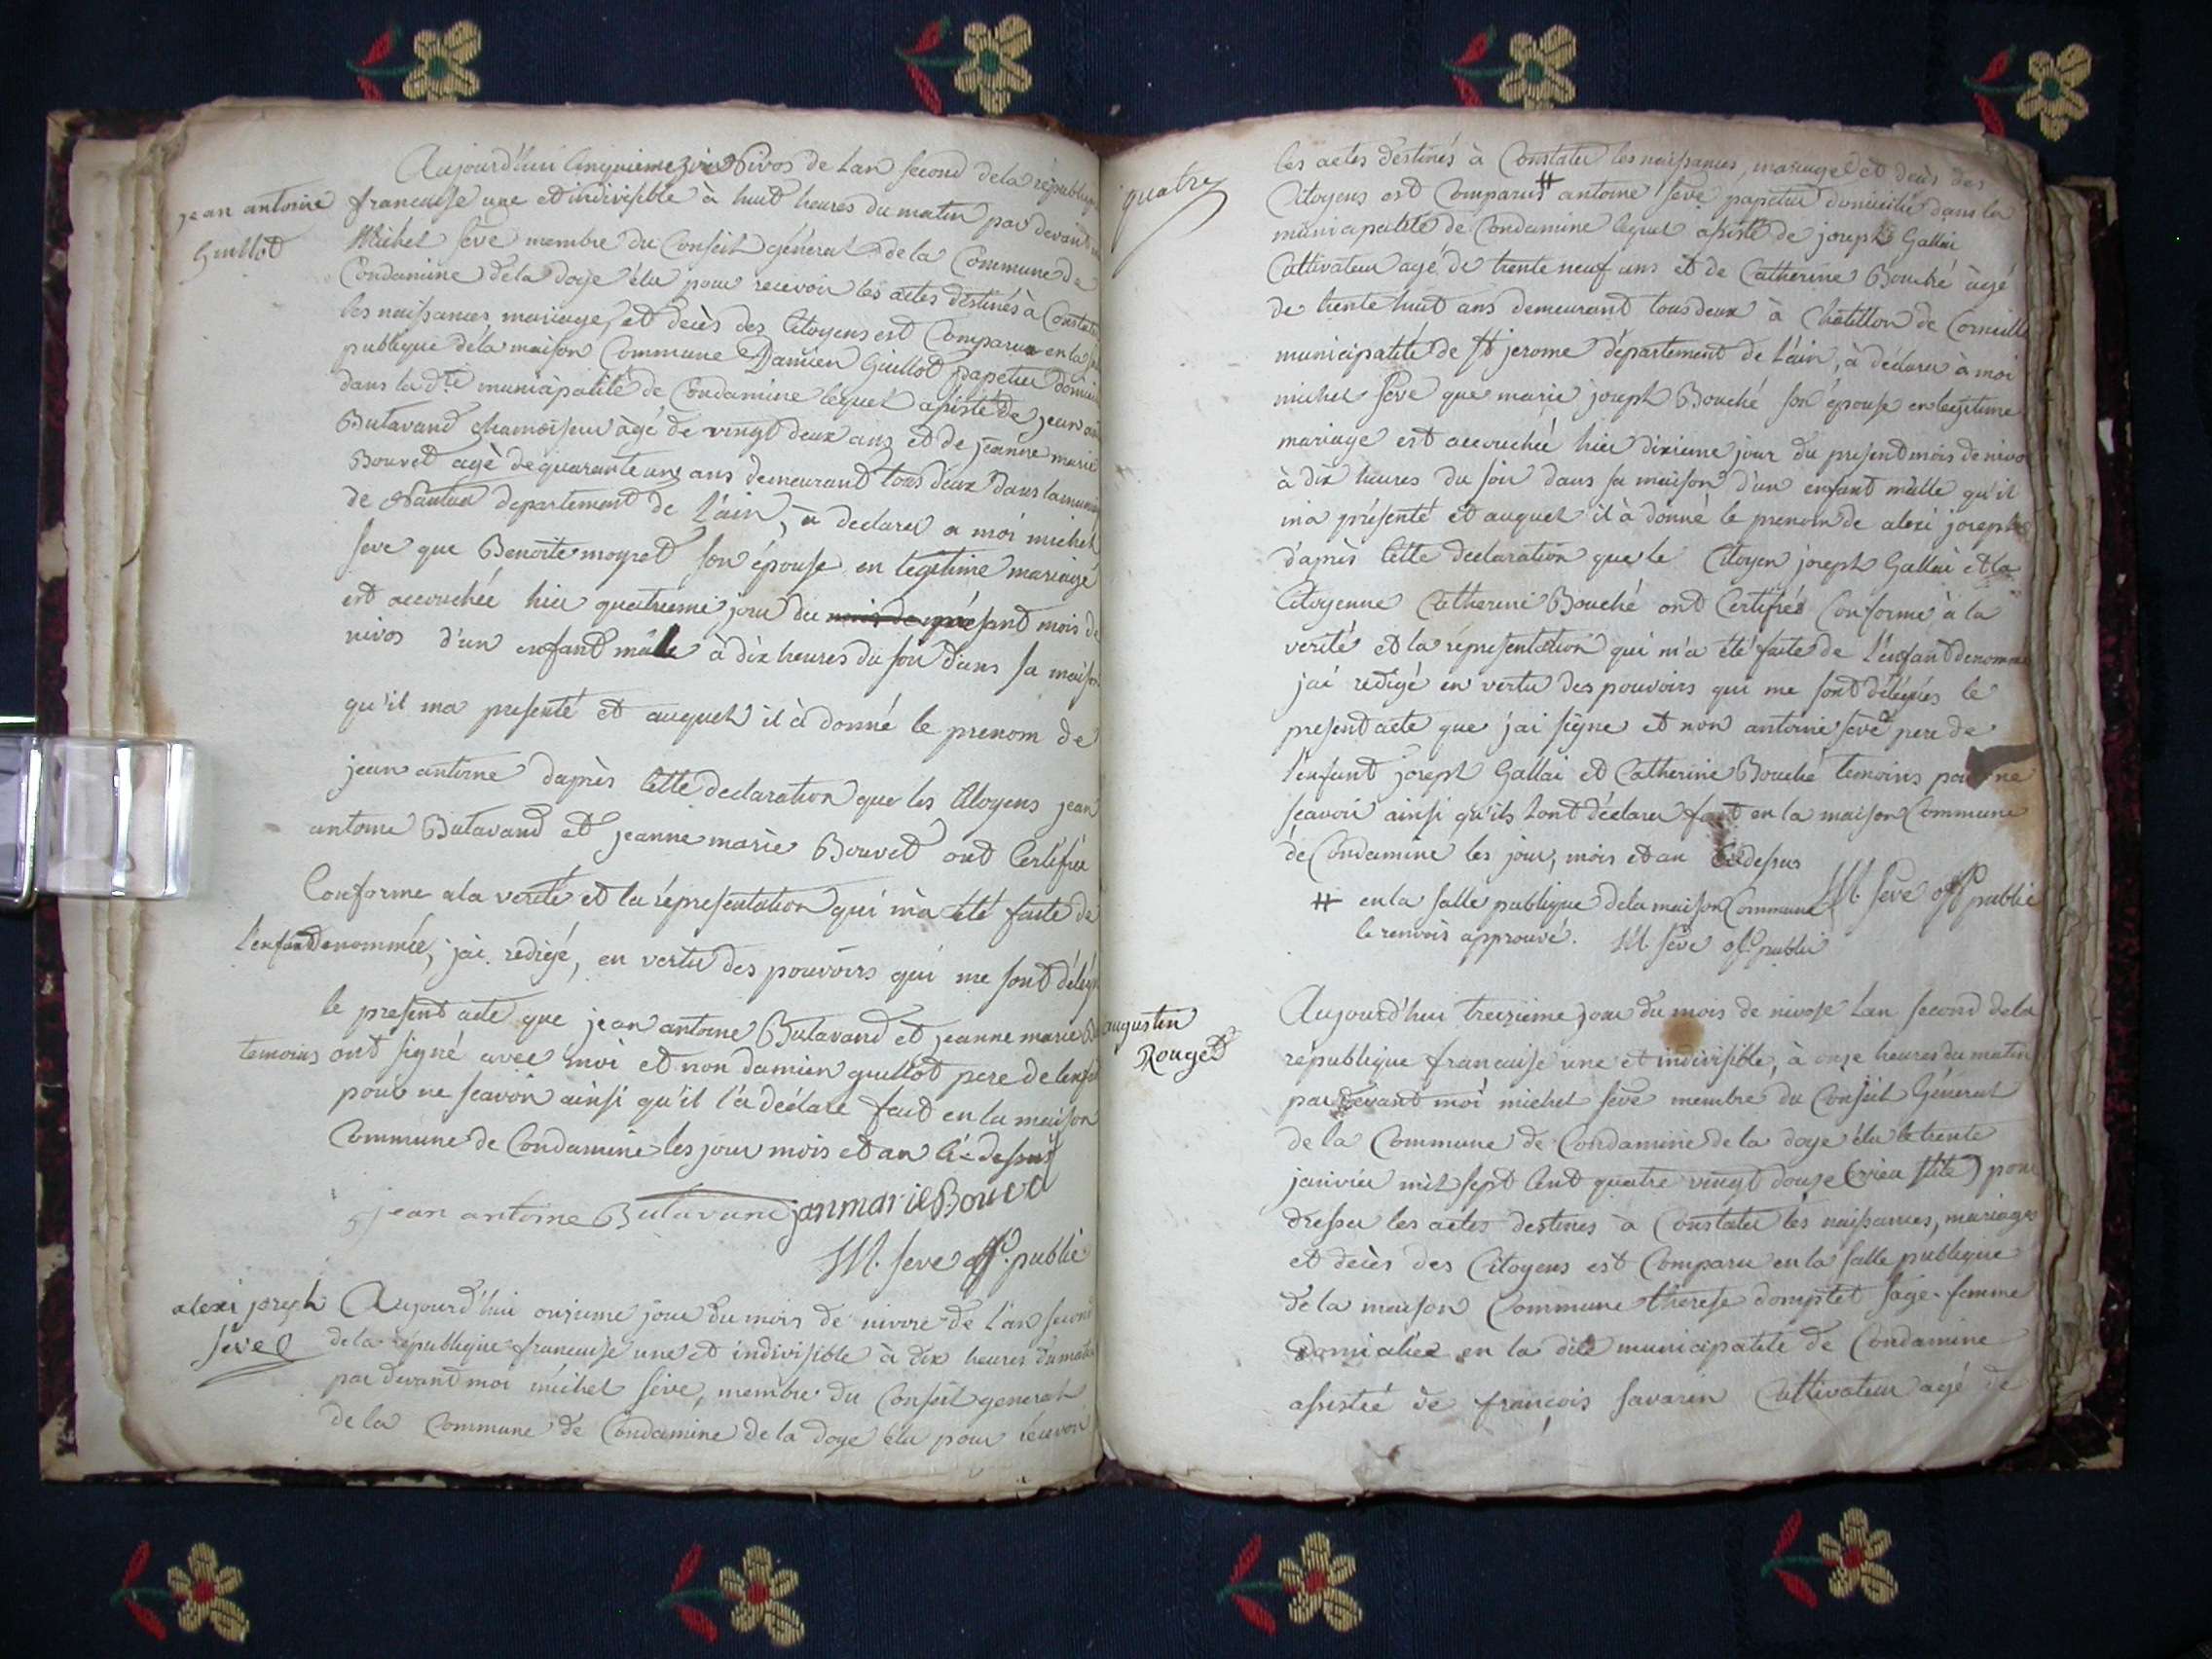 Aujourd'hui Cinquieme jour Nivos de Lan second de la republique
jean antoine
Guillot
francaise une et indivisible à huit heures du matin par devant
Michel seve membre du Conseil géneral de la Commune de
Condamine de la doye élu pour recevoir les actes déstinés à Constater
les naissances mariage, et decès des Citoyens est Comparu en la
publique dela maison Commune Damien Guillot papetier
dans la dte municipalité de Condamine lequel assisté de jean
Butavand chamoiseur âgé de vingt deux ans et de jeanne marie
Bouvet agé de quarante une ans demeurant tous deux dans la
de Nantua departement de L'ain, à declarer a moi michel
seve que Benoite moyret son épouse en legitime mariage
est accouchée hier quatrieme jour du présant mois de
nivos d'un enfant mâle à dix heures du soir dans sa maison
qu'il ma presenté et auquel il à donné le prenom de
jean antoine daprès Cette declaration que les Citoyens jean
antoine Butavand et jeanne marie Bouvet ont Certifiée
Conforme a la verité et la répresentation qui m'a été faite de
L'enfant denommée, j'ai redigé, en vertu des pouvoirs qui me sont
le present acte que jean antoine Butavand et jeanne marie
temoins ont signé avec moi et non damien guillot pere de
pour ne seavoir ainsi qu'il l'à déclaré fait en la maison
Commune de Condamine les jour mois et an Ci-dessus
jean antoine Butavand janmarieBouvet
M. seve off. public
alexi joseph
seve
Aujourd'hui onzieme jour du mois de nivose de L'an second
de la republique francaise une et indivisible à dix heures du matin
par devant moi michel seve, membre du Conseil general
de la Commune de Condamine de la doye élu pour récevoir
quatre
les actes destinés à Constater les naissances, mariage et décès des
Citoyens est Comparu # antoine seve papetier domicilié dans la
municipalité de Condamine lequel assisté de joseph Gallai
Cultivateur agé de trente neuf ans et de Catherine Bouché âgé
de trente huit ans demeurant tous deux à Chatillon de Corneille
municipalité de St jerome département de L'ain, à déclarer à moi
michel seve que marie joseph Bouché son épouse en legitime
mariage est accouchée hier dixieme jour du present mois de nivos
à dix heures du soir dans sa maison d'un enfant mâlle qu'il
m'a présenté et auquel il à donné le prenom de alexi joseph
d'après Cette declaration que le Citoyen joseph Gallai et la
Citoyenne Catherine Bouché ont Certifiés Conforme à la
verité et la répresentation qui m'a été faite de L'enfant denommé
j'ai redigé en vertu des pouvoirs qui me sont délégués le
present acte que j'ai signe et non antoine seve pere de
l'enfant joseph Gallai et Catherine Bouché temoins pour ne
seavoir ainsi qu'ils Lont déclarer fait en la maison Commune
de Condamine les jour, mois et an Ci dessus
M. seve off public
# en la salle publique dela maison Commune
le renvois approuvé. M. seve off. public
augustin
Rouget
Aujourd'hui treizieme jour du mois de nivose Lan second de la
république francaise une et indivisible, à onze heures du matin
par devant moi michel seve membre du Conseil Géneral
de la Commune de Condamine de la doye élu le trente
janvier mil sept Cent quatre vingt douze (vieu stile) pour
dresser les actes destinés à Constater les naissances, mariages
et décès des Citoyens est Comparu en la salle publique
de la maison Commune therese domptet sage-femme
domiciliée en la dite municipalité de Condamine
assistée de françois savarin Cultivateur agé de